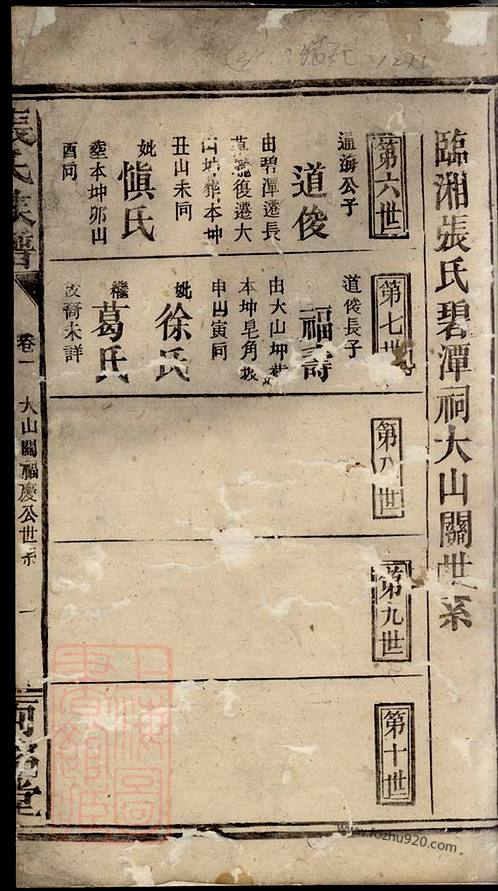 臨湘張氏碧潭祠大山關世系
第六世
通海公子
道俊
由碧潭遷長
復遷大
山坤葬本坤
丑山未同
妣
愼氏
塟本坤夘山
酉同
第七世
道俊長子
福壽
由大山坤
本坤皂角坡
申山寅同
妣
徐氏
繼
葛氏
改裔未詳
第八世
第九世
第十世
張氏族譜
卷一
大山關福慶公世系
一
堂
上海圖書館藏
www.fozhu920.com